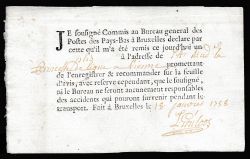 JE soussigné Commis au Bureau general des
Postes des Pays-Bas à Bruxelles declare par
cette qu'il m'a été remis ce jourd'hui un
à l'adresse de
à Vienne promettant
de l'enregistrer & recommander sur la feuille
d'avis, avec reserve cependant, que le soussigné,
ni le Bureau ne seront aucunement responsables
des accidents qui pourront survenir pendant le
transport. Fait à Bruxelles le 18 janvier 1758